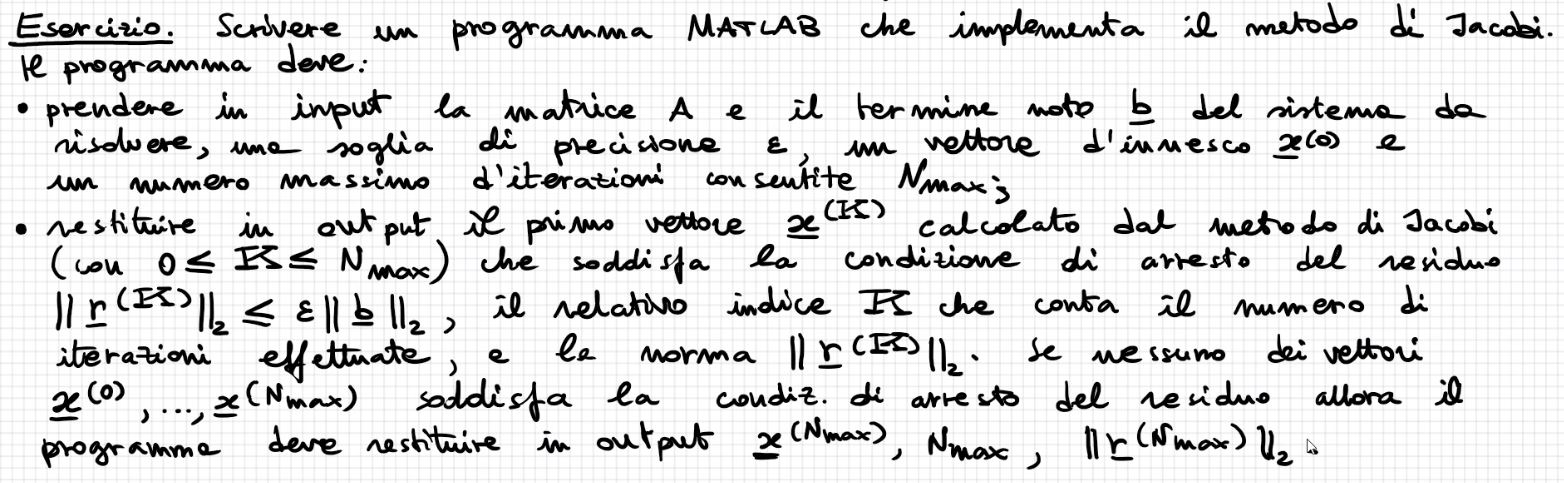 Esercizio. Scrivere un programma MATLAB che implementa il metodo di Jacobi.
Il programma deve:
• prendere in input la matrice A e il termine noto b del sistema da
risolvere, una soglia di precisione ε, un vettore d'innesco x^(0) e
un numero massimo d'iterazioni consentite Nmax;
• restituire in output il primo vettore x^(K) calcolato dal metodo di Jacobi
(con 0 ≤ K ≤ Nmax) che soddisfa la condizione di arresto del residuo
||r^(K)||₂ ≤ ε||b||₂, il relativo indice K che conta il numero di
iterazioni effettuate, e la norma ||r^(K)||₂. Se nessuno dei vettori
x^(0),...,x^(Nmax) soddisfa la condiz. di arresto del residuo allora il
programma deve restituire in output x^(Nmax), Nmax, ||r^(Nmax)||₂.